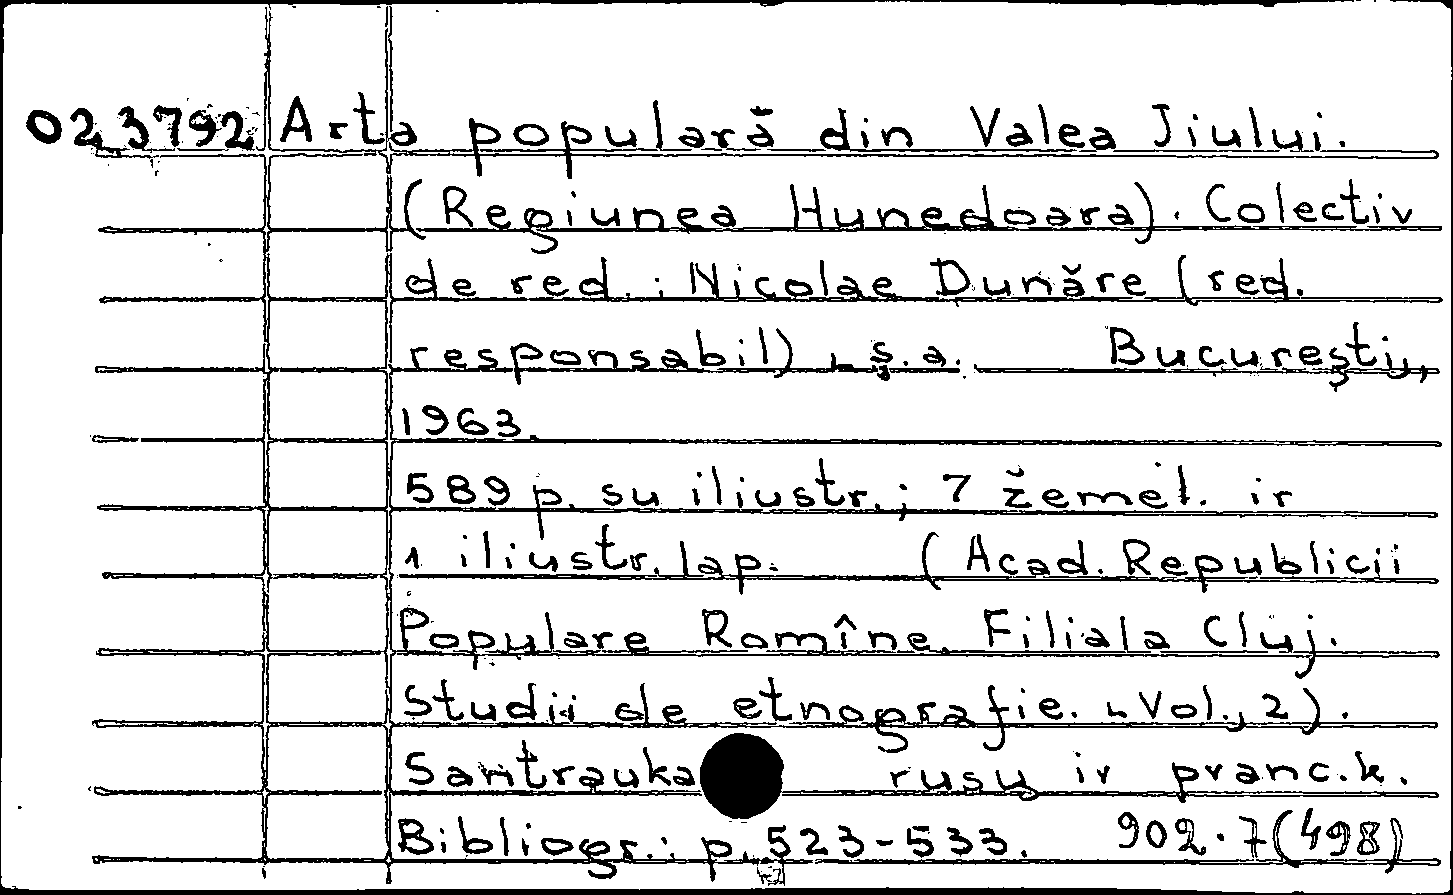 023792 Arta populară din Valea Jiului.
(Regiunea Hunedoara). Colectiv
de red.: Nicolae Dunăre (red.
responsabil) ş.a. Bucureşti,
1963.
589 p. su iliustr.; 7 žemėl. ir
1 iliustr. lap. (Acad. Republicii
Populare Romîne. Filiala Cluj.
Studii de etnografie. Vol., 2).
Santrauka rusų ir pranc. k.
Bibliogr.: p. 523-533. 902.7(498)